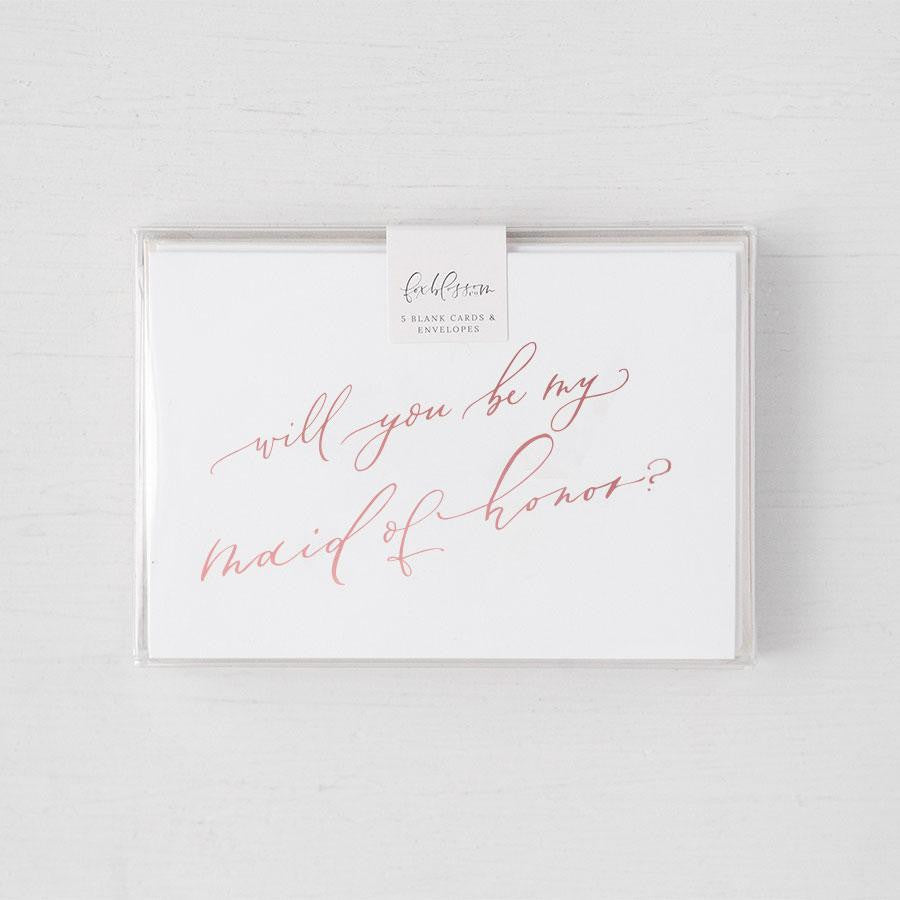 foxblossom
co
5 BLANK CARDS &
ENVELOPES
will you be my
maid of honor?